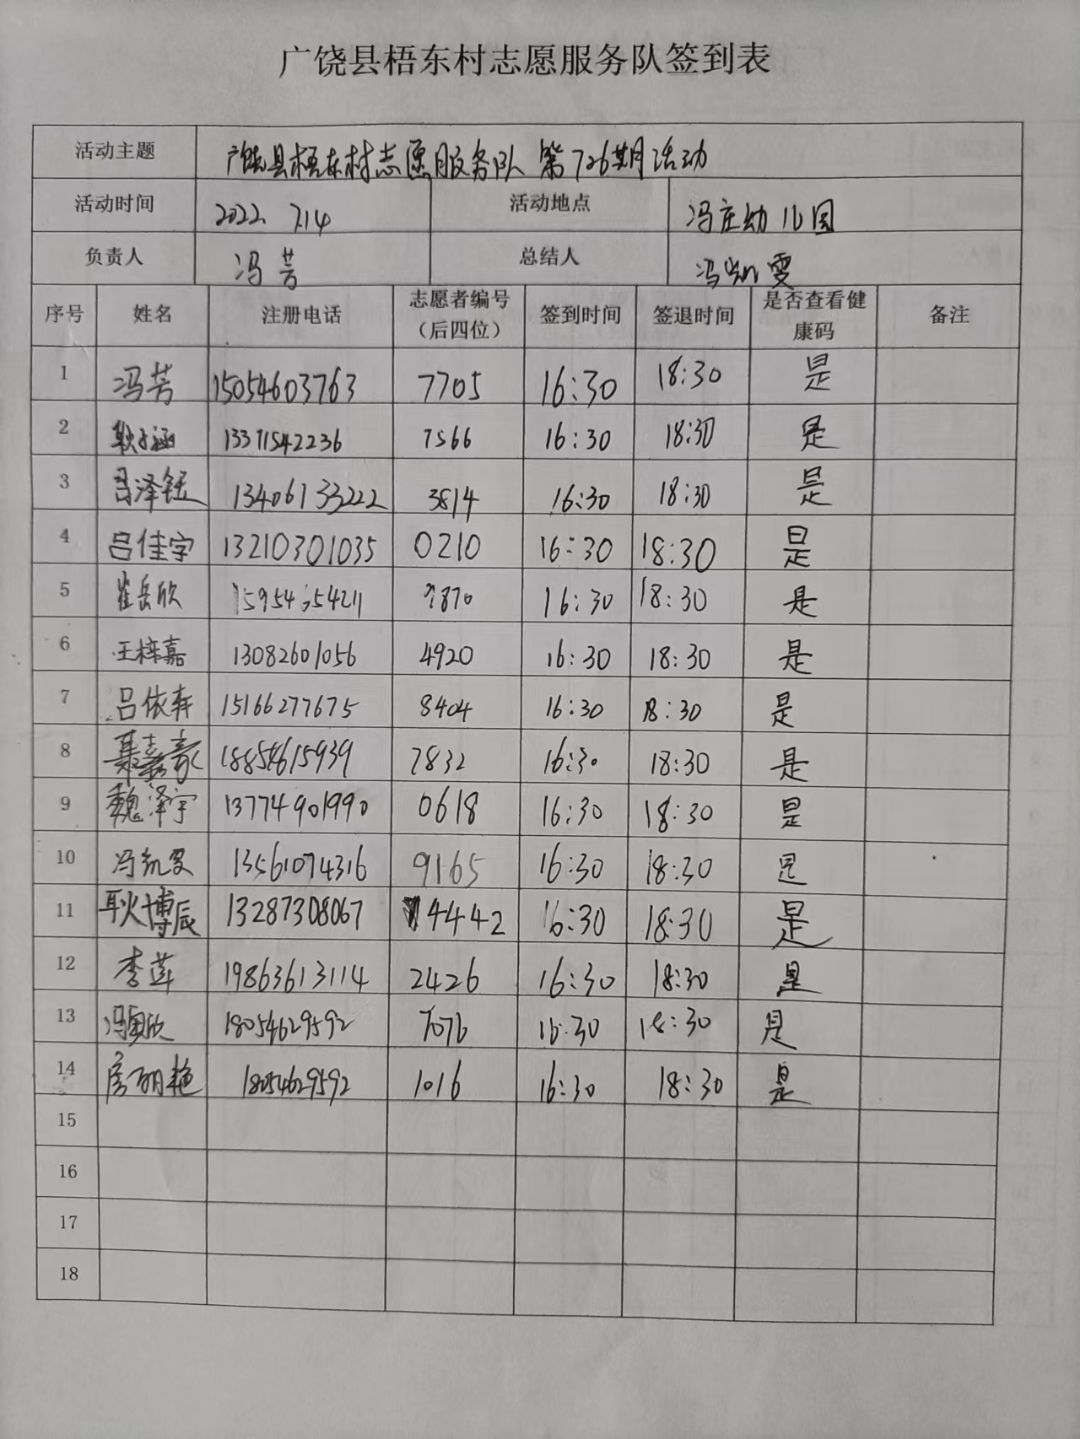 广饶县梧东村志愿服务队签到表
活动主题 广饶县梧东村志愿服务队 第726期活动
活动时间 2022. 7.14 活动地点 冯庄幼儿园
负责人 冯芳 总结人 冯凯雯
序号 姓名 注册电话 志愿者编号 签到时间 签退时间 是否查看健 备注
（后四位） 康码
1 冯芳 15054603763 7705 16:30 18:30 是
2 耿子涵 13371542236 7566 16:30 18:30 是
3 吕泽钰 13406133222 3814 16:30 18:30 是
4 吕佳宇 13210301035 0210 16:30 18:30 是
5 崔岳欣 16:30 18:30 是
6 王梓嘉 13082601056 4920 16:30 18:30 是
7 吕依 15166277675 8404 16:30 18:30 是
8 聂嘉豪 18854615939 7832 16:30 18:30 是
9 魏泽宇 13774901990 0618 16:30 18:30 是
10 冯凯雯 13561074316 9165 16:30 18:30 是
11 耿博辰 13287308067 4442 16:30 18:30 是
12 李莲 19863613114 2426 16:30 18:30 是
13 18054629592 7076 16:30 18:30 是
14 房丽艳 18054629592 1016 16:30 18:30 是
15
16
17
18